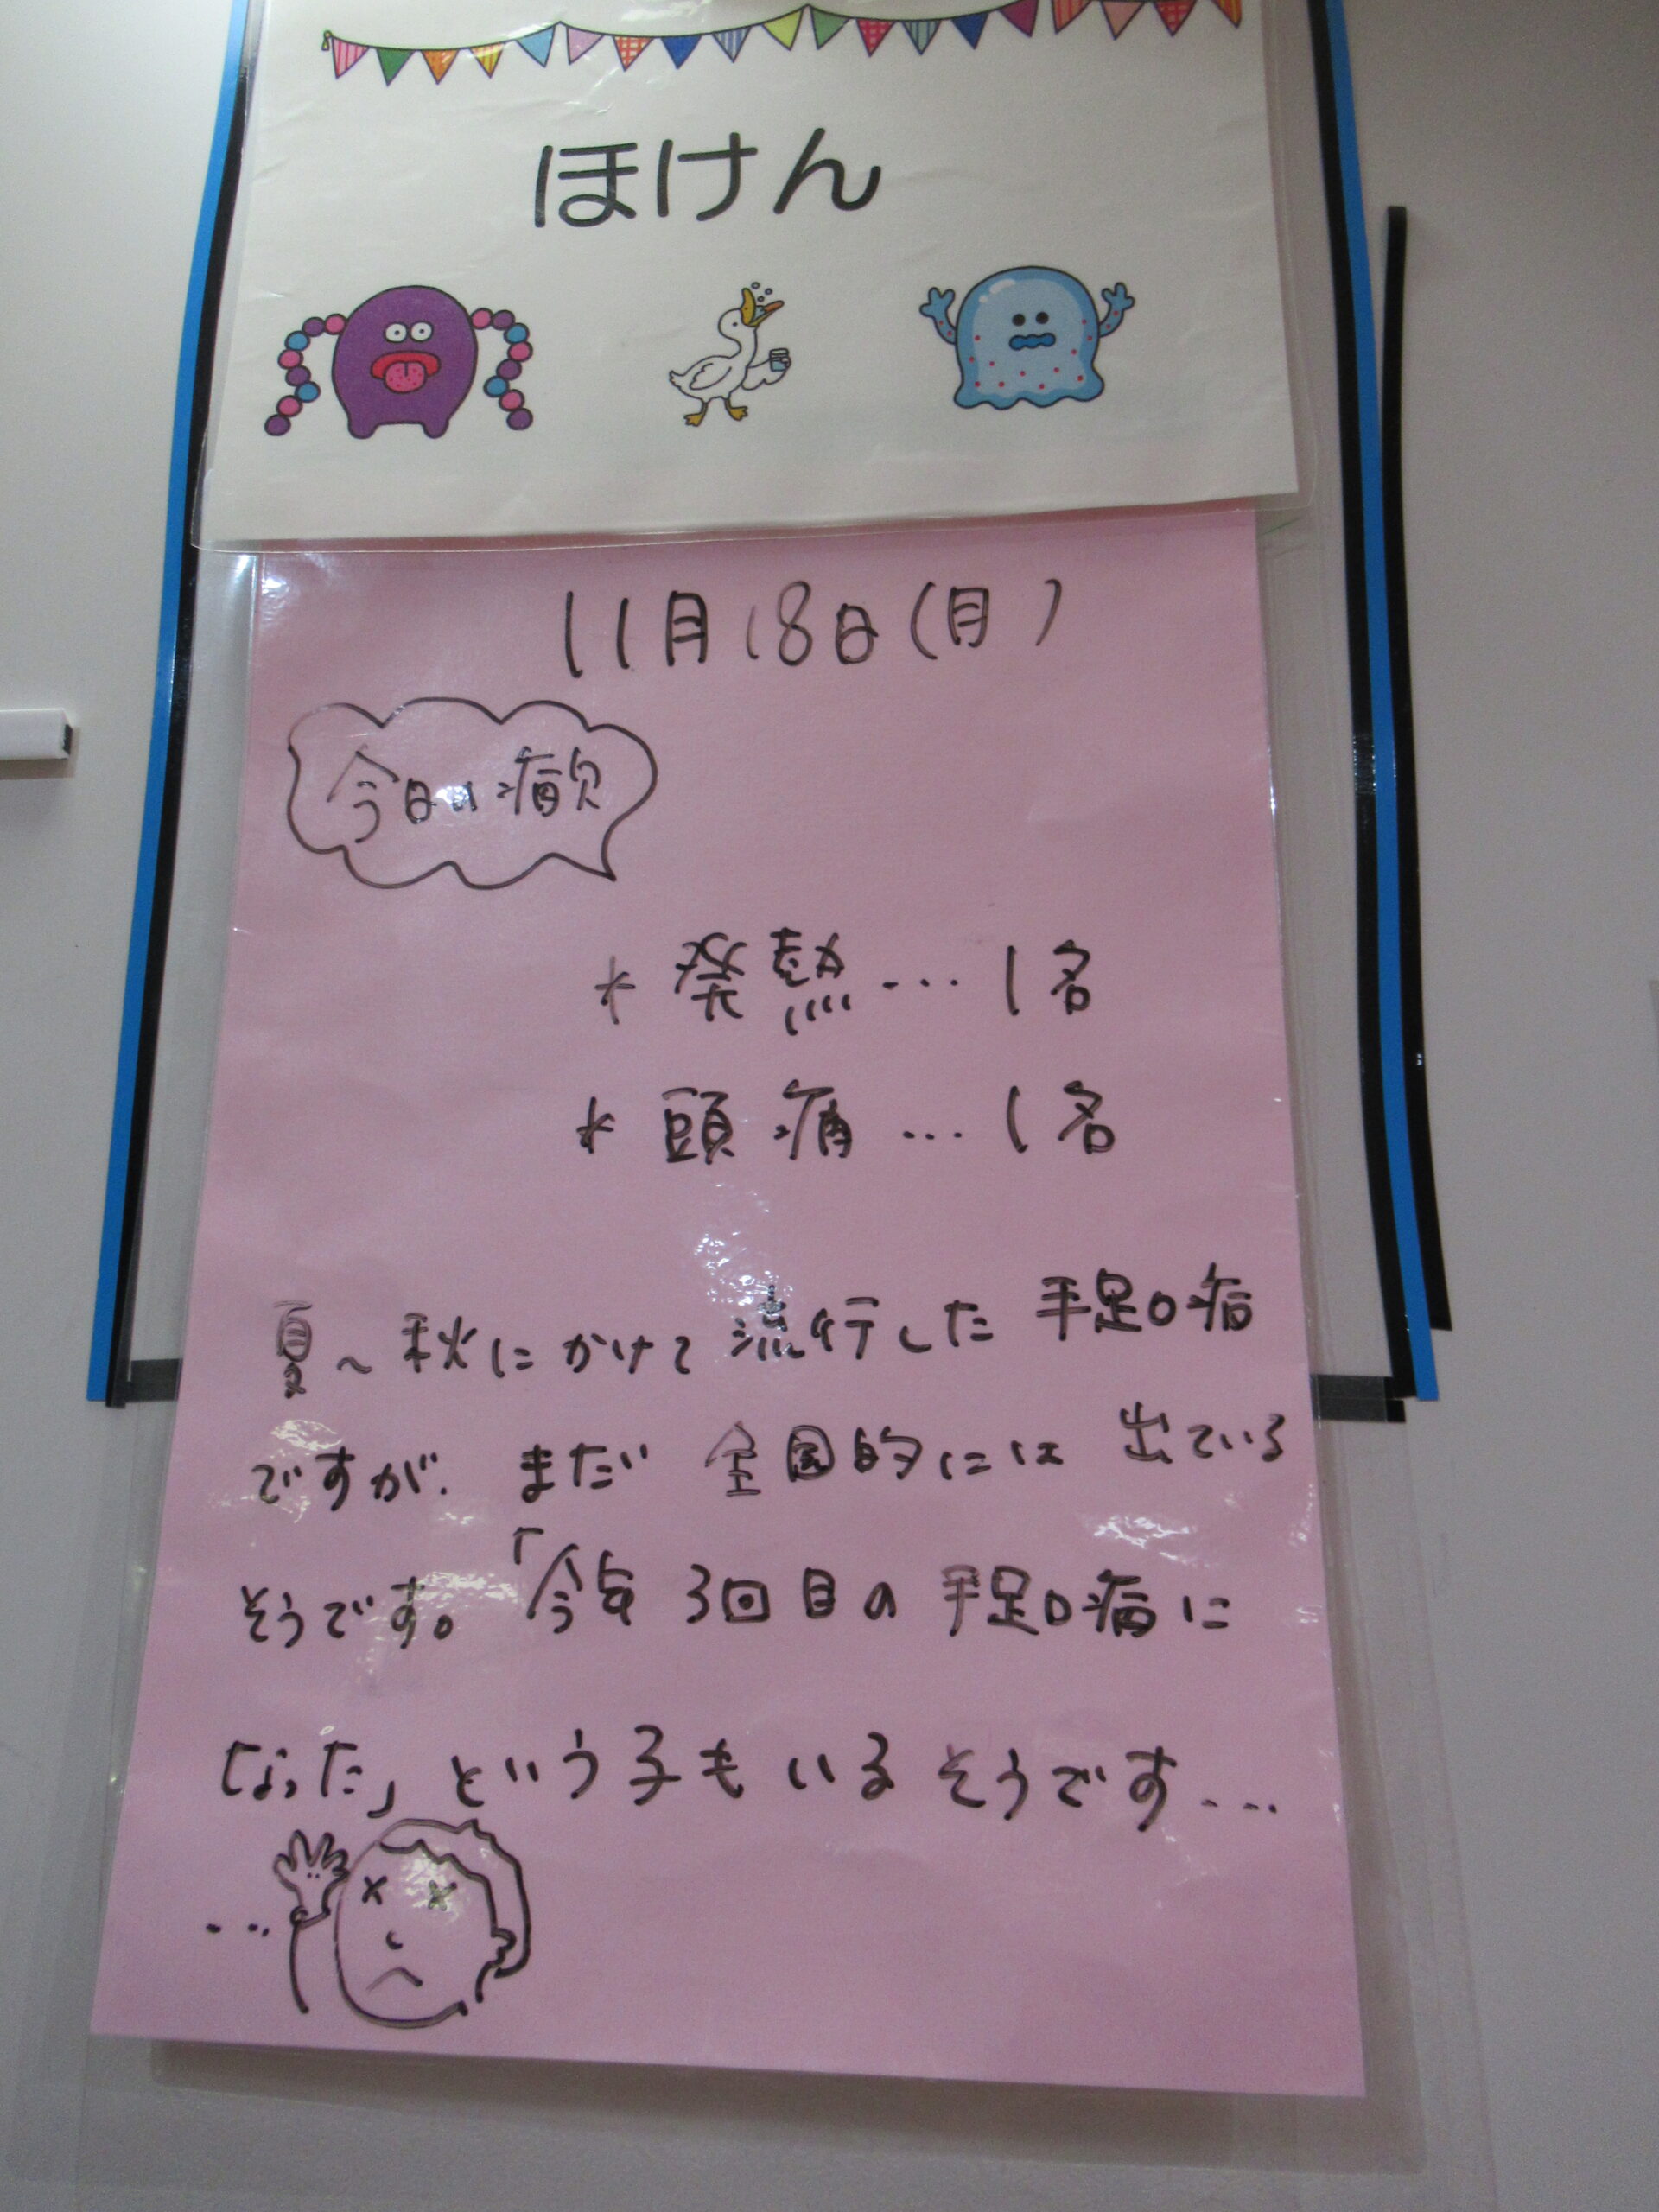 ほけん
11月18日(月)
今日の病欠
* 発熱… 1名
* 頭痛… 1名
夏〜秋にかけて流行した手足口病
ですが、まだ全国的には出ている
そうです。「今年3回目の手足口病に
なった」という子もいるそうです…
…